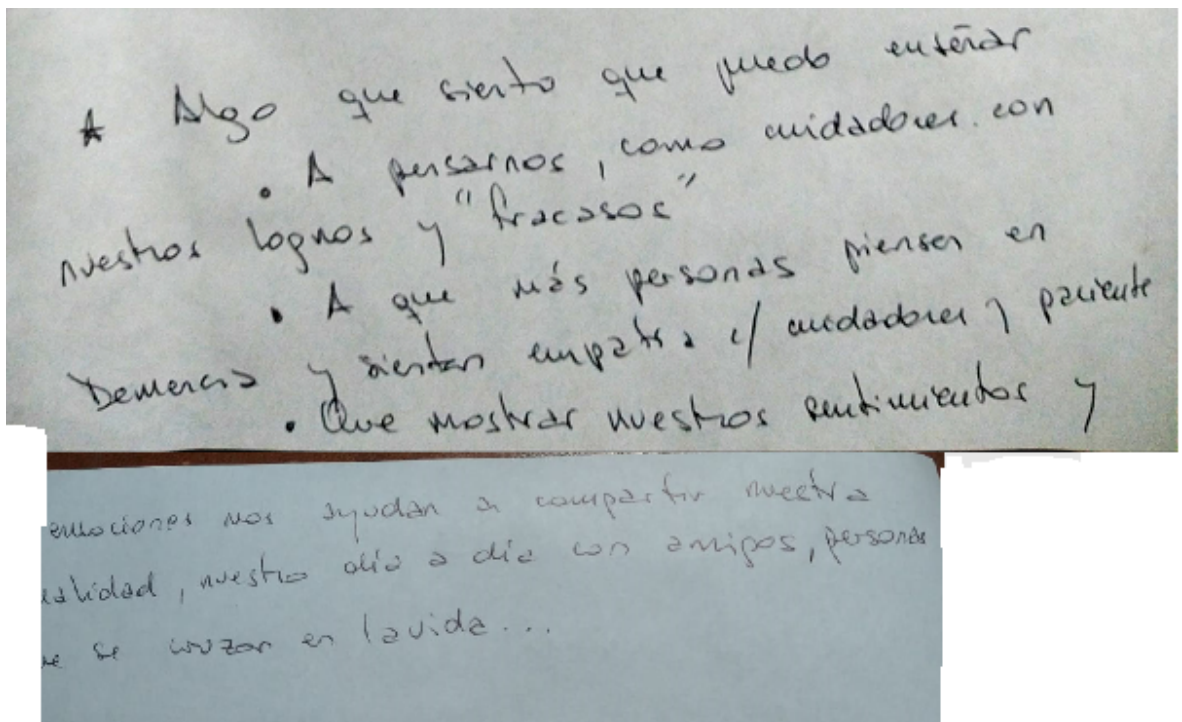 * Algo que siento que puedo enseñar
• A pensarnos, como cuidadores con
nuestros logros y "fracasos"
• A que más personas piensen en
Demencia y sientan empatía c/ cuidadores y paciente
• Que mostrar nuestros sentimientos y
emociones nos ayudan a compartir nuestra
ealidad, nuestro día a día con amigos, personas
ue se cruzan en la vida...